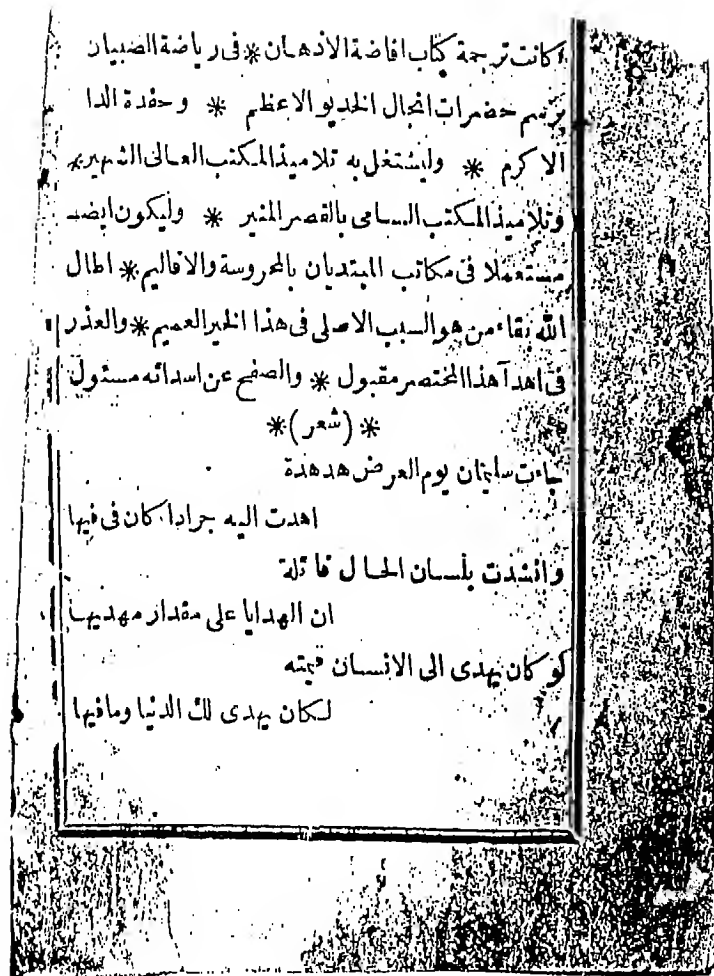 كانت ترجمة كتاب افاضة الاذهان * فى رياضة الصبيان
برسم حضرات انجال الخديو الاعظم * وحفدة الدا
الاكرم * وليشتغل به تلاميذ المكتب العالى الشهير *
وتلاميذ المكتب السامى بالقصر المنير * وليكون ايضـ
مستعملا فى مكاتب المبتديان بالمحروسة والاقاليم * اطال
الله بقاء من هو السبب الاصلى فى هذا الخير العميم * والعذر
فى اهدآ هذا المختصر مقبول * والصفح عن اسدائه مسئول
* (شعر) *
جاءت سليمان يوم العرض هدهدة
اهدت اليه جرادا كان فى فيها
وانشدت بلسان الحال قائلة
ان الهدايا على مقدار مهديها
لو كان يهدى الى الانسان قيمته
لكان يهدى لك الدنيا ومافيها